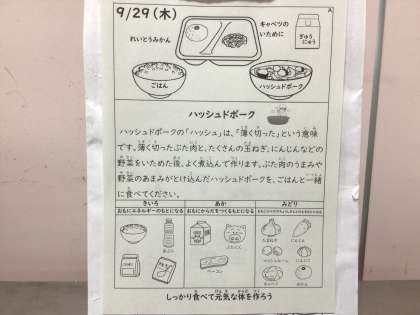 9/29(木)
A
れいとうみかん
キャベツの
いために
ぎゅう
にゅう
ごはん
ハッシュドポーク
ハッシュドポーク
ハッシュドポークの「ハッシュ」は、「薄く切った」という意味
です。薄く切ったぶた肉と、たくさんの玉ねぎ、にんじんなどの
野菜をいためた後、よく煮込んで作ります。ぶた肉のうまみや
野菜のあまみがとけ込んだハッシュドポークを、ごはんと一緒
に食べてください。
きいろ
あか
みどり
おもにエネルギーのもとになる
おもにからだをつくるもとになる
ベーコン
たまねぎ
にんじん
マッシュルーム
にんにく
キャベツ
みかん
しっかり食べて元気な体を作ろう